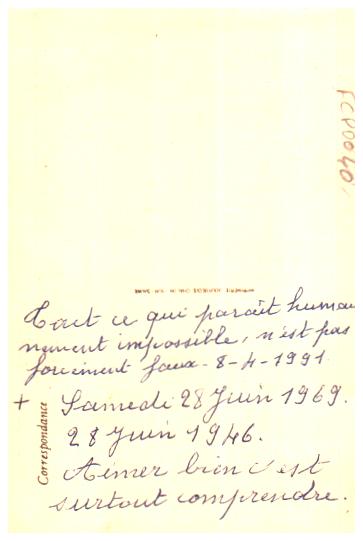 FCP0040
Tout ce qui paraît humai
nement impossible, n'est pas
forcément faux - 8-4-1991
+ Samedi 28 Juin 1969.
28 Juin 1946.
Correspondance
Aimer bien c'est
surtout comprendre.